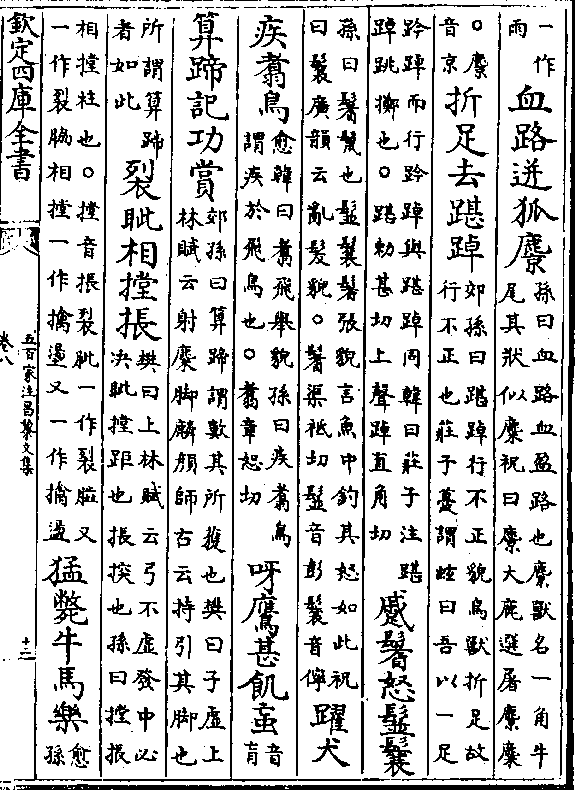 一作
而
血路迸狐麖
孫曰血路血盈路也麖獸名一角牛
尾其狀似麋祝曰麖大鹿逕屠麖麋
○麖
音京
折足去踸踔
郊孫曰踸踔行不正貌鳥獸折足故
行不正也莊子夔謂蚿曰吾以一足
趻踔而行趻踔與踸踔同韓曰莊子注踸
踔跳擲也○踸勅甚切上聲踔直角切
蹙鬐怒䰃鬤
孫曰鬐鬣也䰃鬤鬐張貌言魚中鈎其怒如此祝
曰鬤廣韻云亂髮貌○鬐渠祗切䰃音彭鬤音儜
躍犬
疾翥鳥
愈韓曰翥飛舉貌孫曰疾翥鳥
謂疾於飛鳥也○翥章恕切
呀鷹甚飢䖟
音
盲
算蹄記功賞
郊孫曰算蹄謂數其所獲也樊曰子虛上
林賦云射麋脚麟顏師古云持引其脚也
所謂算蹄
者如此
裂眦相摚振
樊曰上林賦云弓不虛發中必
決眦摚距也振揬也孫曰摚振
相摚柱也○摚音振裂眦一作裂脰又
一作裂腦相摚一作擒盪又一作擒盪
猛斃牛馬樂
愈
孫
欽定四庫全書
五百家注昌黎文集
卷八
十二